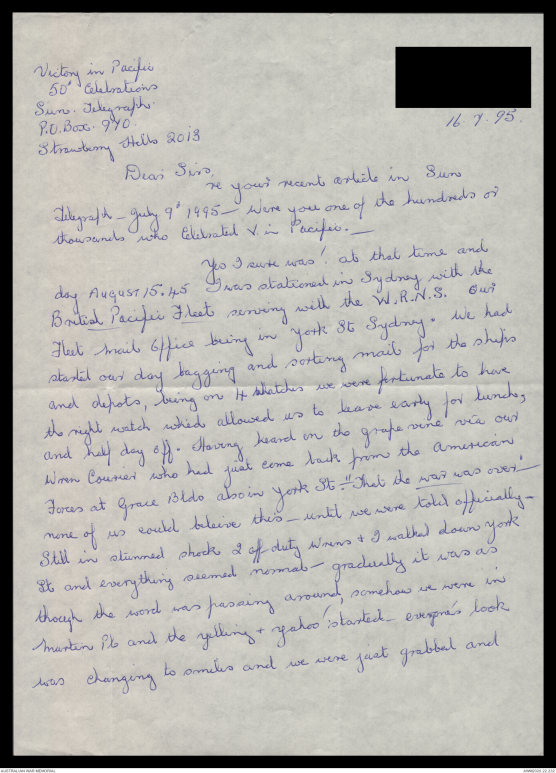 Victory in Pacific
50th Celebrations
Sun. Telegraph.
P.O. Box. 970.
Strawberry Hills 2013
16.7.95.
Dear Sirs,
re your recent article in Sun
Telegraph - July 9th 1995 - Were you one of the hundreds or
thousands who Celebrated V. in Pacific. -
Yes I sure was! at that time and
day August 15.45 I was stationed in Sydney with the
British Pacific Fleet serving with the W.R.N.S. Our
Fleet Mail Office being in York St Sydney. We had
started our day bagging and sorting mail for the ships
and depots, being on 4 Watches we were fortunate to have
the right watch which allowed us to leave early for lunch,
and half day off. Having heard on the grape vine via our
Wren Courier who had just come back from the American
Forces at Grace Bldo also in York St - "That the war was over"
none of us could beleive this - until we were told officially -
Still in stunned shock 2 off duty Wrens + I walked down York
St and everything seemed normal - gradually it was as
though the word was passing around, somehow we were in
Martin Pl and the yelling + yahoo! started - everyone's look
was changing to smiles and we were just grabbed and
AUSTRALIAN WAR MEMORIAL